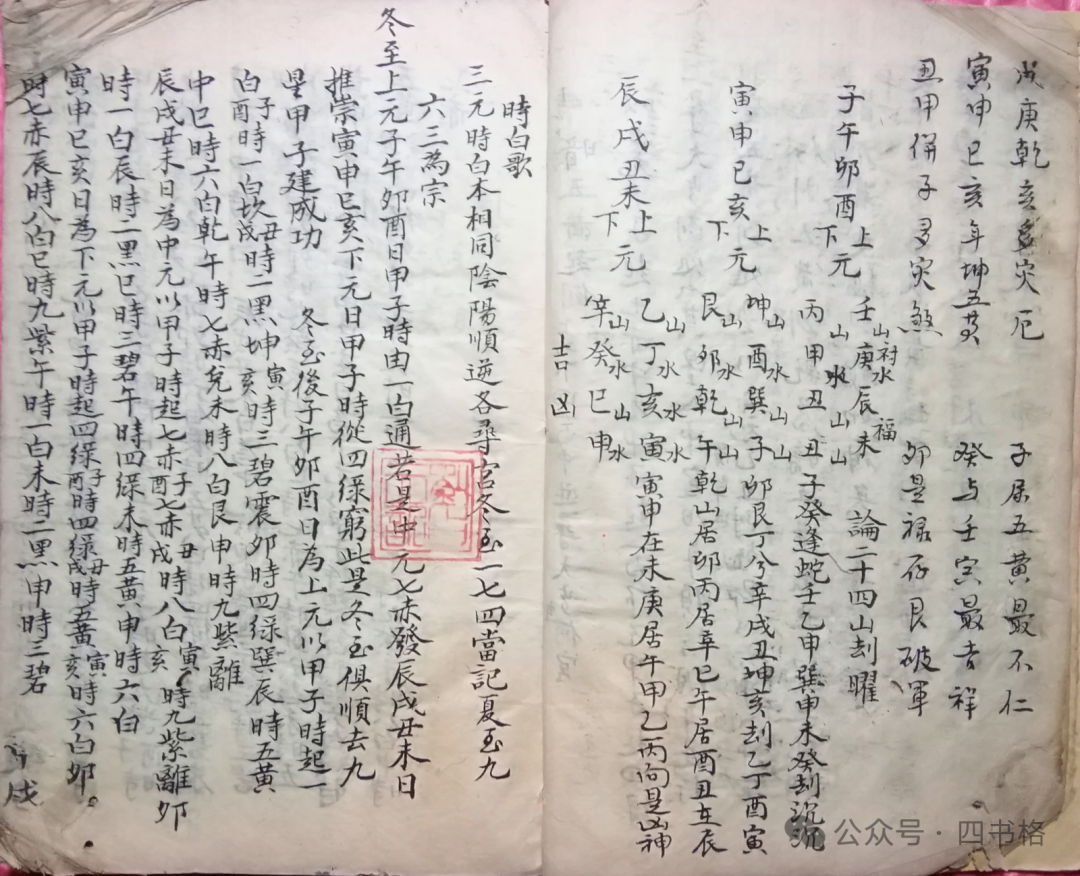 戌庚乾亥多灾厄　子居五黄最不仁
寅申巳亥年坤五黄　癸与壬寅最吉祥
丑甲併子多灾煞　卯是禄存艮破軍
子午卯酉上下元
壬山庚水辰山未
丙山甲水丑山
論二十四山刦曜
丑子癸逢蛇壬乙申巽申未癸刦沉沉
寅申巳亥上下元
坤山酉水巽山子山卯艮丁兮辛戌丑坤亥刦乙丁酉寅
艮山卯水乾山午山乾山居卯丙居辛巳午居酉丑在辰
辰戌丑未上下元
乙山丁水亥水寅水寅申在未庚居午甲乙丙向是凶神
辛山癸水巳山申水
吉凶
時白歌
三元時白本相同陰陽順逆各尋宮冬至一七四當記夏至九
六三為宗
冬至上元子午卯酉日甲子時由一白通若是中元七赤發辰戌丑未日
推崇寅申巳亥下元日甲子時從四綠窮此是冬至俱順去九
星甲子建成功　冬至後子午卯酉日為上元以甲子時起一
白子酉時一白坎丑戌時二黑坤寅亥時三碧震卯時四綠巽辰時五黄
中巳時六白乾午時七赤兌未時八白艮申時九紫離
辰戌丑未日為中元以甲子時起七赤子酉七赤丑戌時八白寅亥時九紫離卯
時一白辰時二黑巳時三碧午時四綠未時五黄申時六白
寅申巳亥日為下元以甲子時起四綠子酉時四綠丑戌時五黄寅亥時六白卯
時七赤辰時八白巳時九紫午時一白未時二黑申時三碧
公众号·四书格